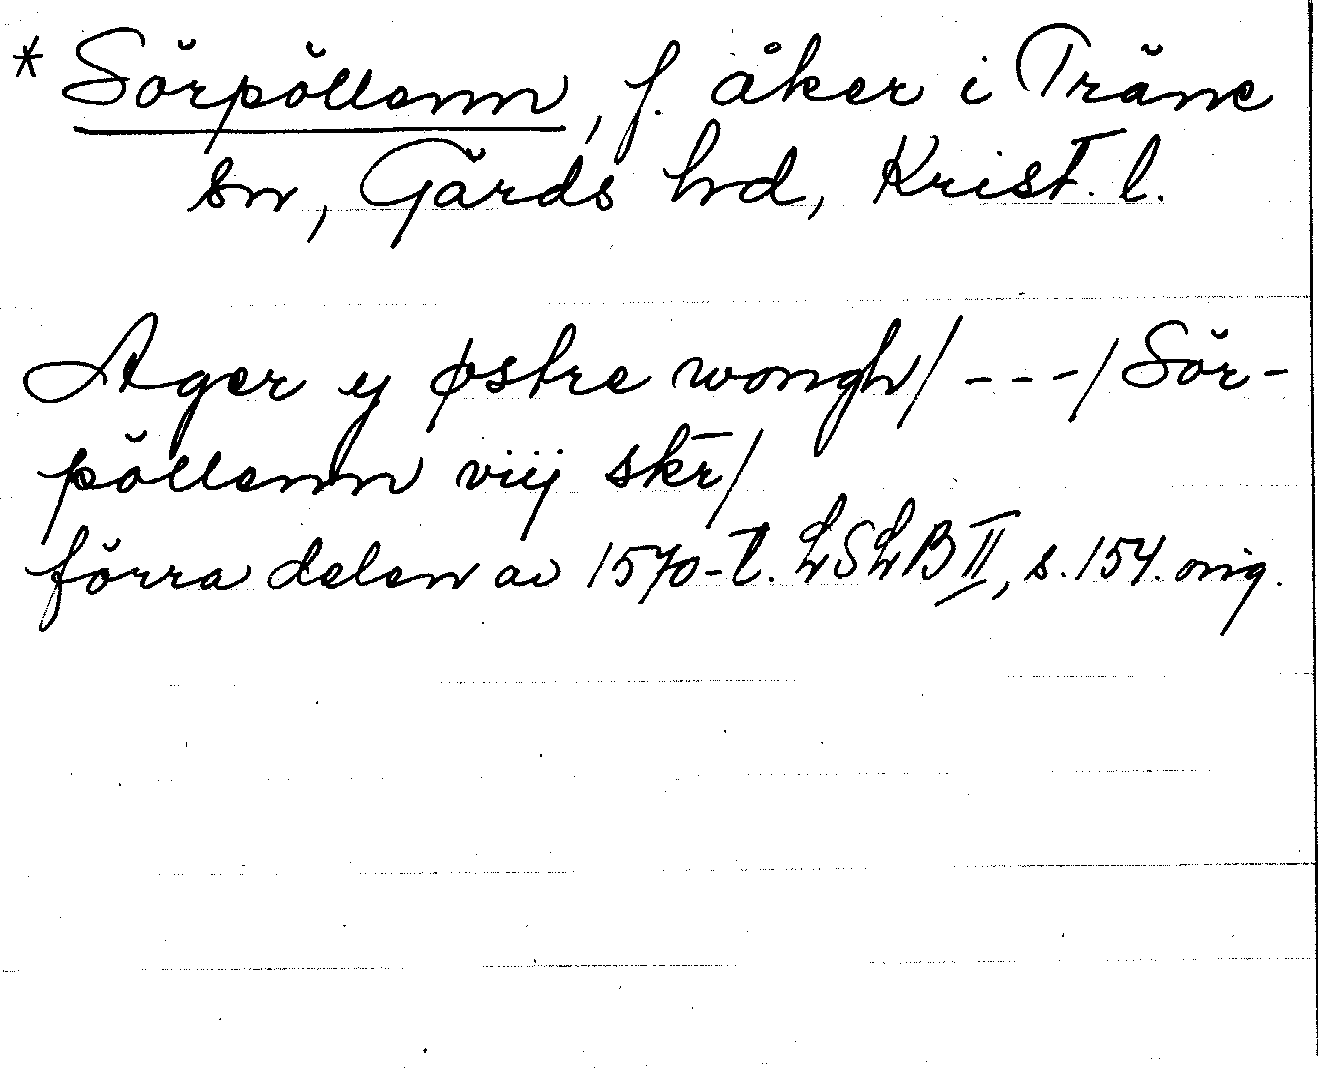 * Sörpöllenn, f. åker i Träne
sn, Gärds hd, Krist. l.
Ager y østre wongh/ - - - / Sör-
pöllenn viij skr/
förra delen av 1570-t. LSLB II, s. 154. orig.